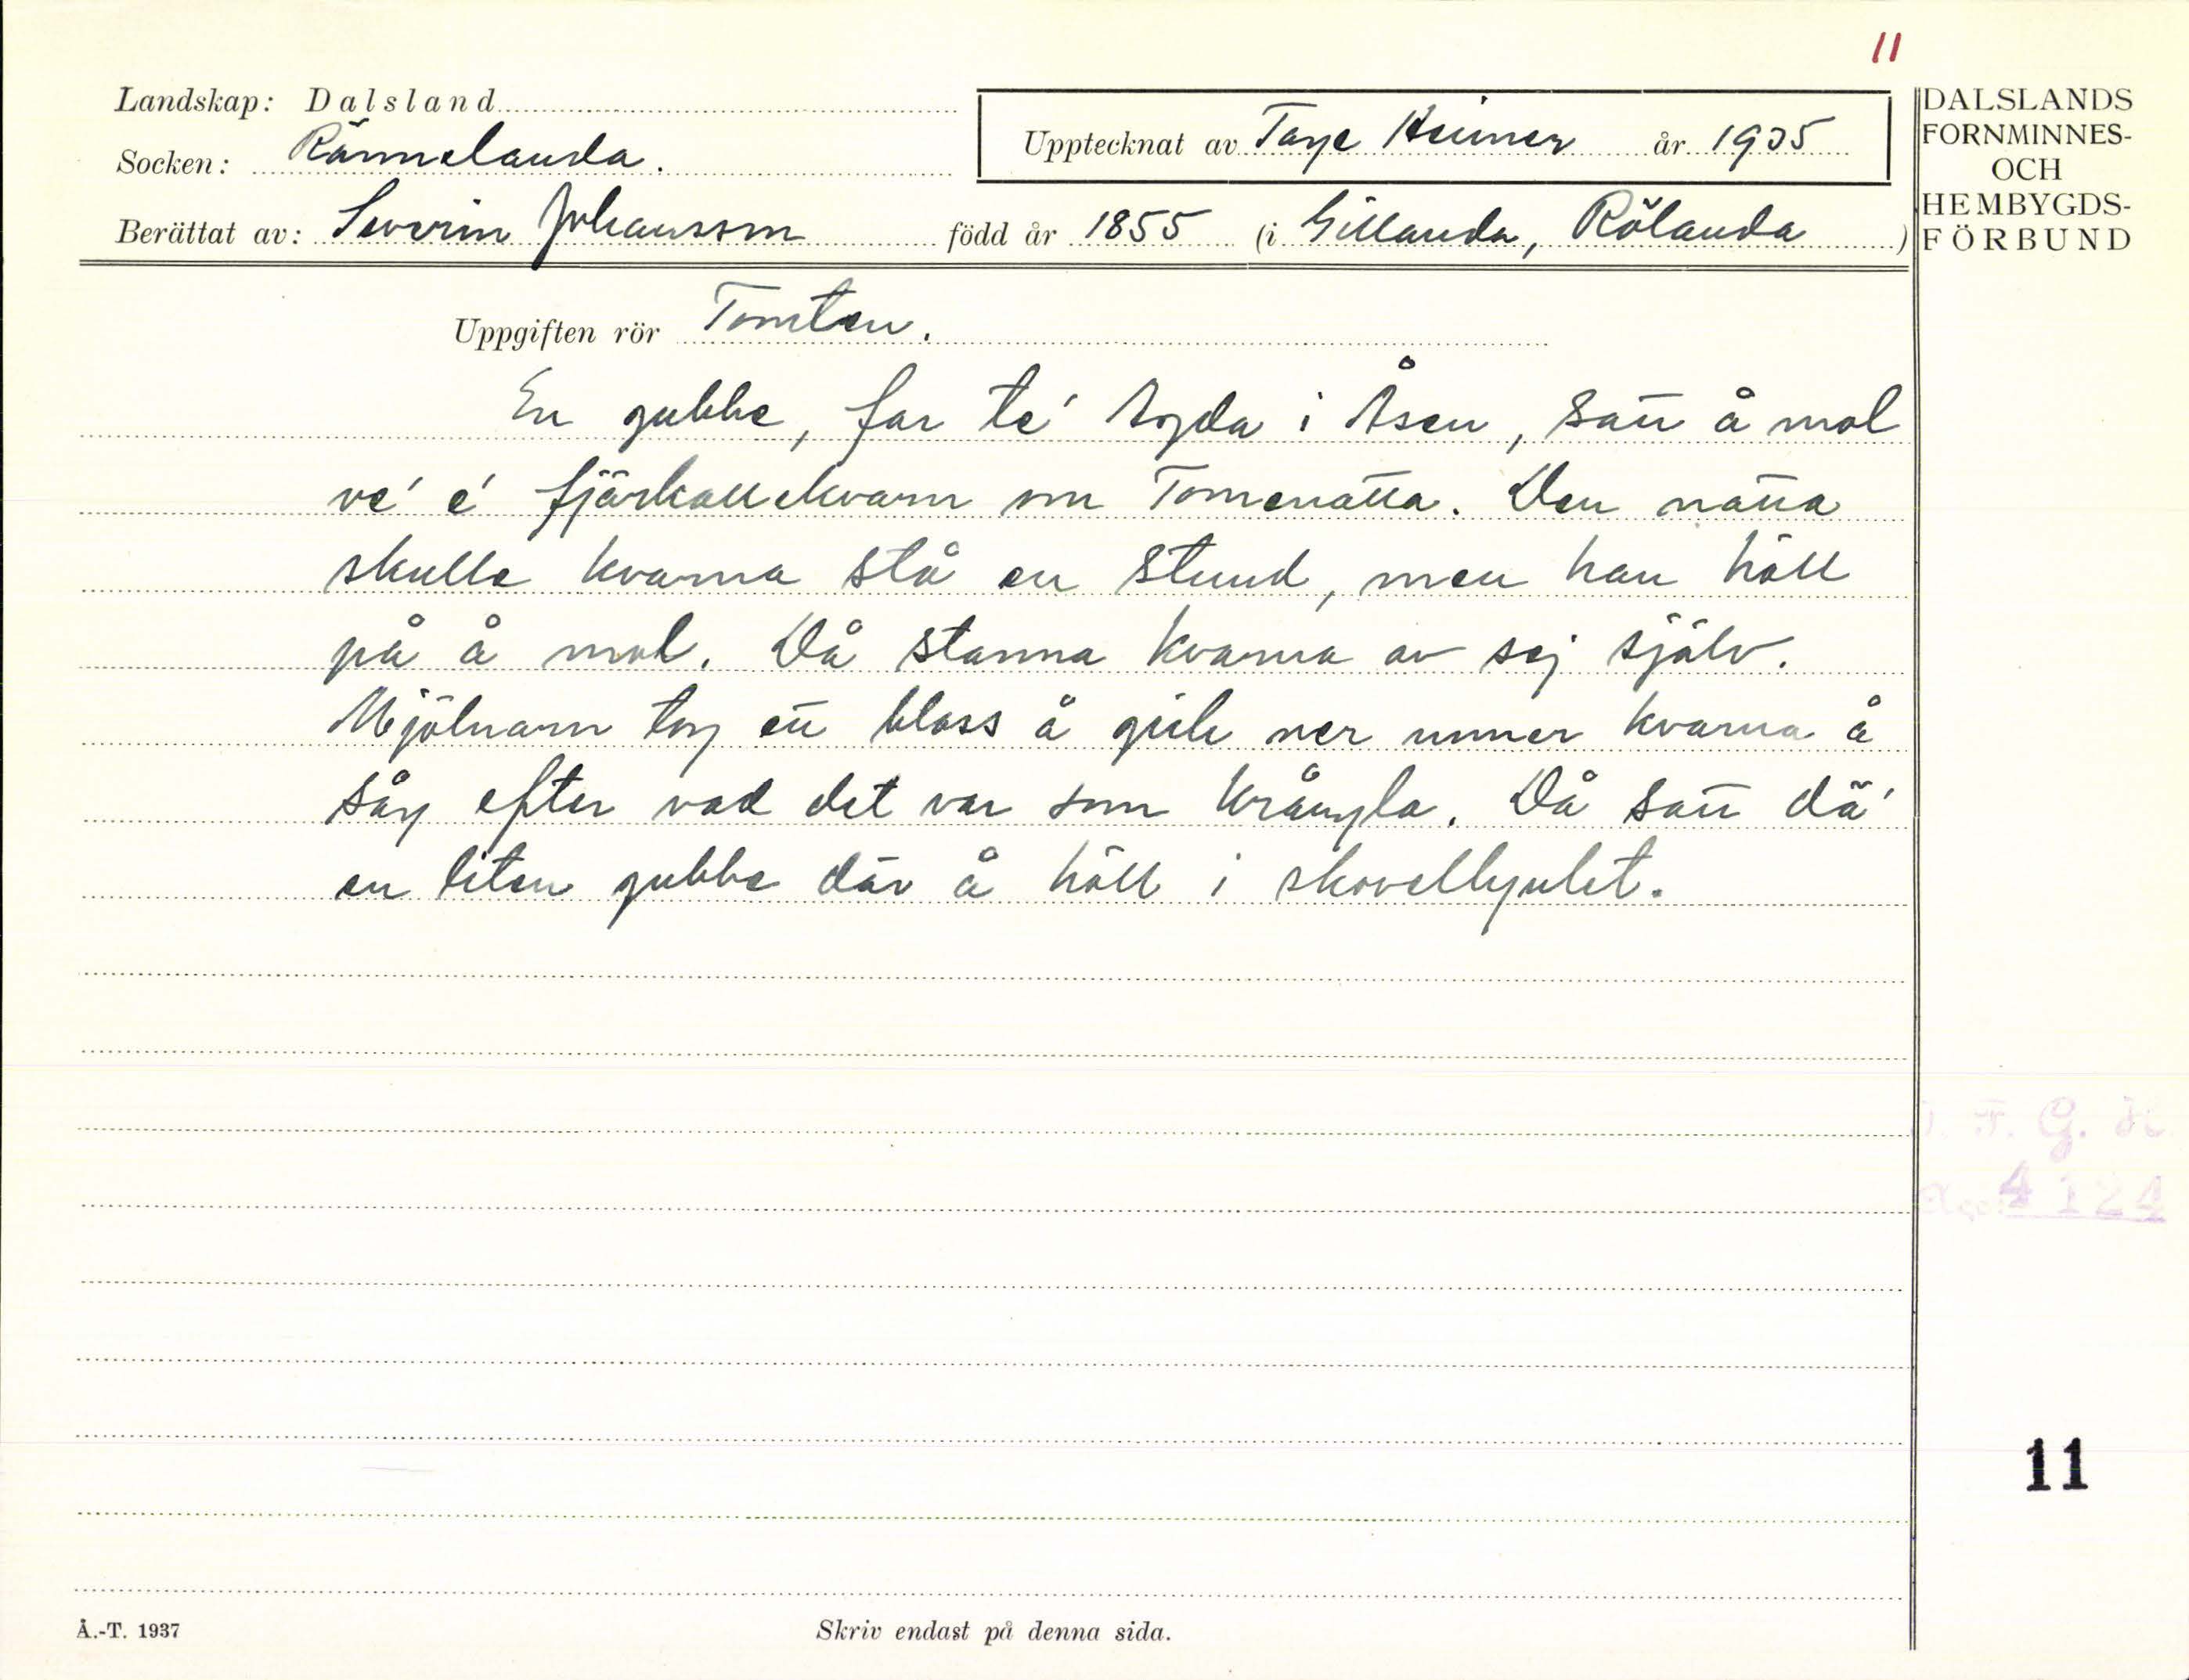 11
Landskap: Dalsland
Socken: Rännelanda.
Upptecknat av Tage Heimer år 1935
Berättat av: Severin Johansson född år 1855 (i Gillanda, Rölanda)
DALSLANDS
FORNMINNES-
OCH
HEMBYGDS-
FÖRBUND
Uppgiften rör Tomten.
En gubbe, far te' Agda i Åsen, satt å mol
ve' e' fjärkallekvarn om Tomenatta. Den natta
skulle kvarna stå en stund, men han höll
på å mol. Då stanna kvarna av sej själv.
Mjölnarn tog ett bloss å gick ner unner kvarna å
såg efter vad det var som krångla. Då satt dä'
en liten gubbe där å höll i skovelhjulet.
F. G. H
4124
11
Å.-T. 1937
Skriv endast på denna sida.